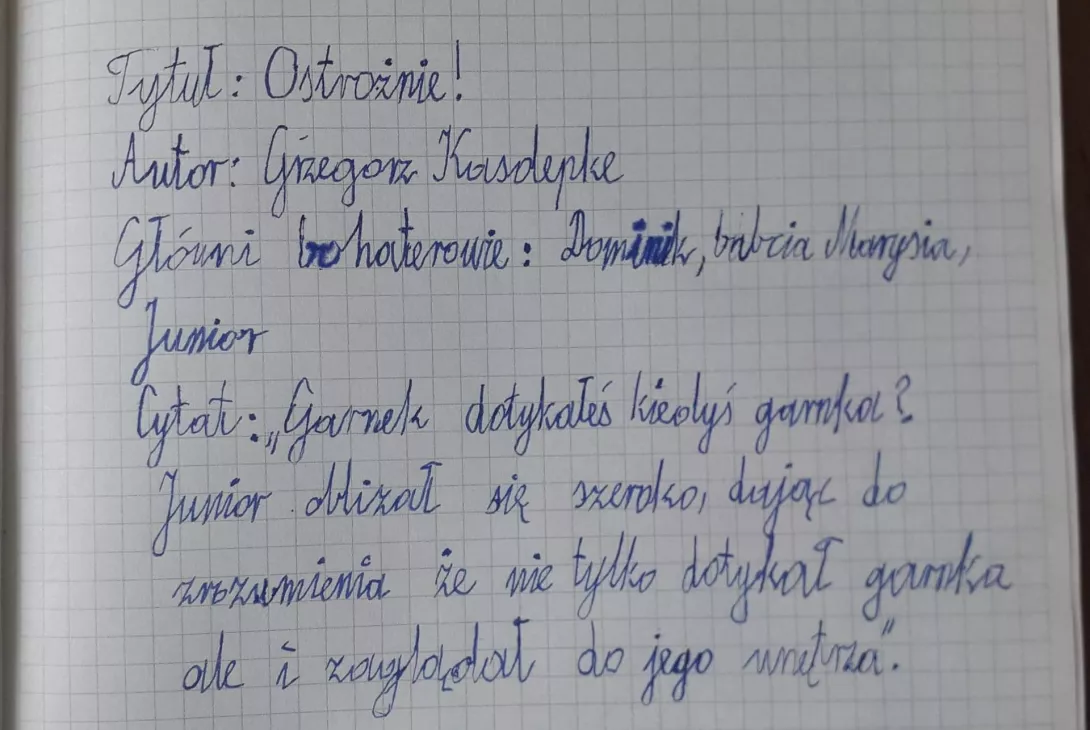 Tytuł: Ostrożnie!
Autor: Grzegorz Kasdepke
Główni bohaterowie: Dominik, babcia Marysia,
Junior
Cytat: „Garnek dotykałeś kiedyś garnka?
Junior oblizał się szeroko, dając do
zrozumienia że nie tylko dotykał garnka
ale i zaglądał do jego wnętrza".